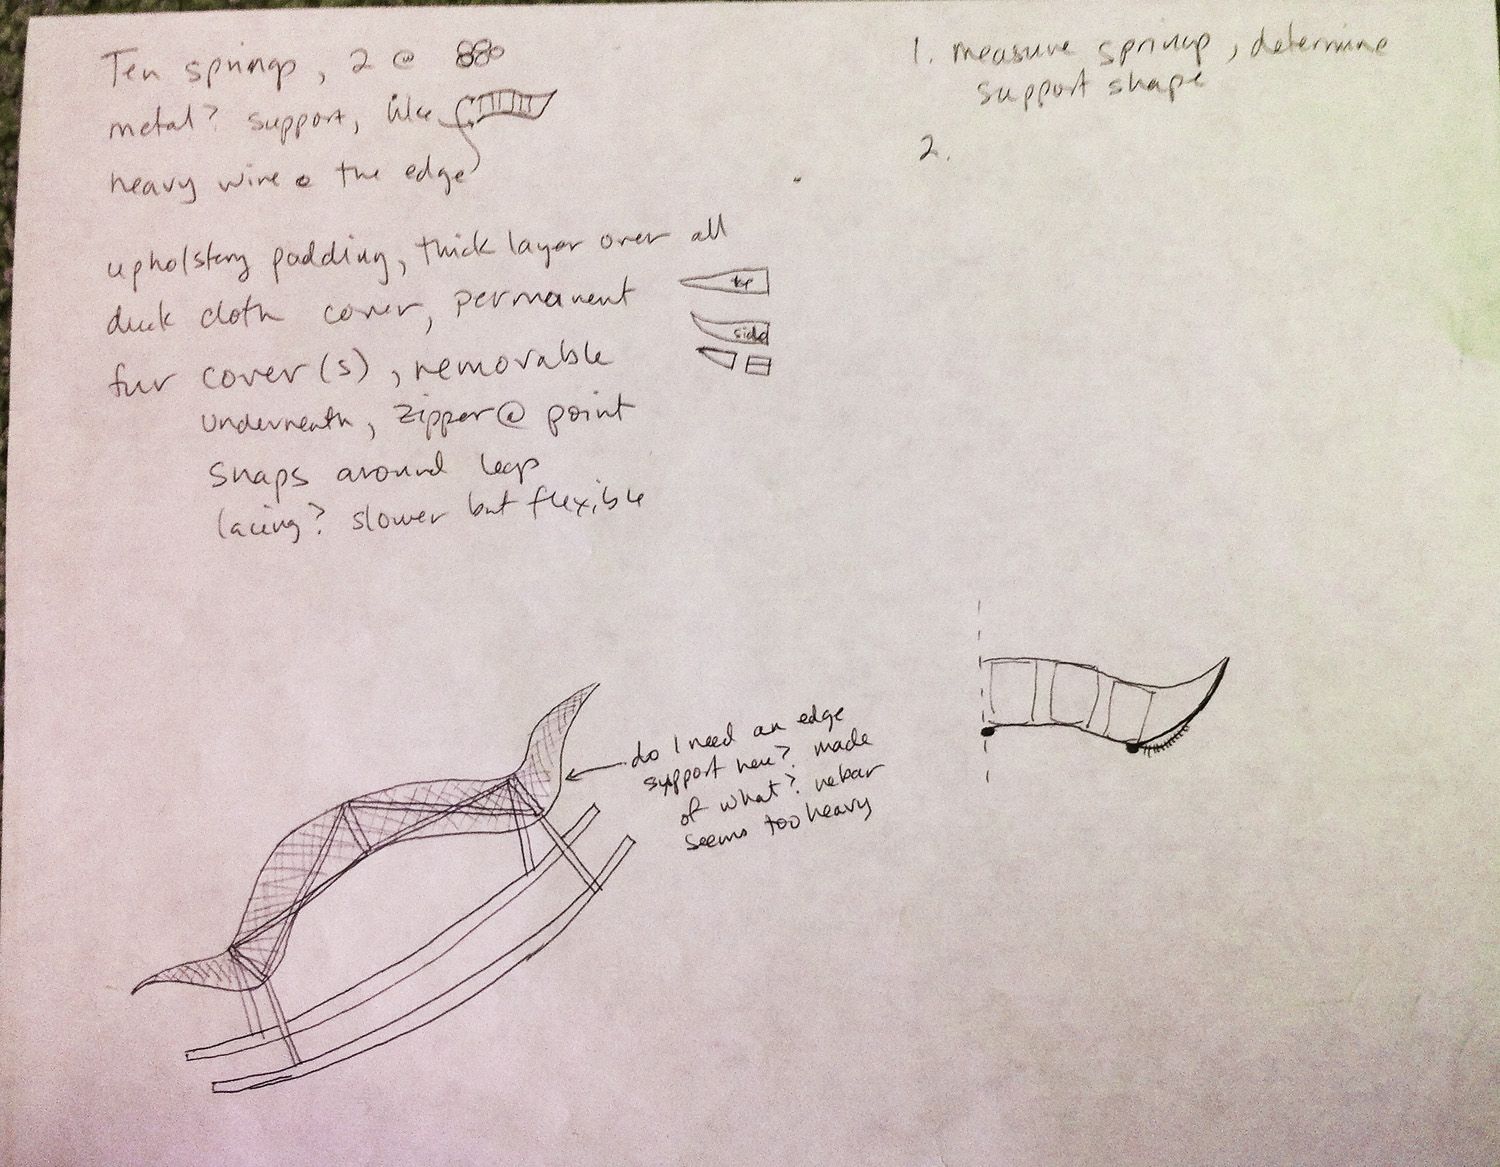 Ten springs, 2 @ 880
metal? support, like
heavy wire @ the edge
upholstery padding, thick layer over all
duck cloth cover, permanent
top
fur cover(s), removable
side
underneath, zipper @ point
snaps around legs
lacing? slower but flexible
1. measure springs, determine
support shape
2.
do I need an edge
support here? made
of what? rebar
seems too heavy